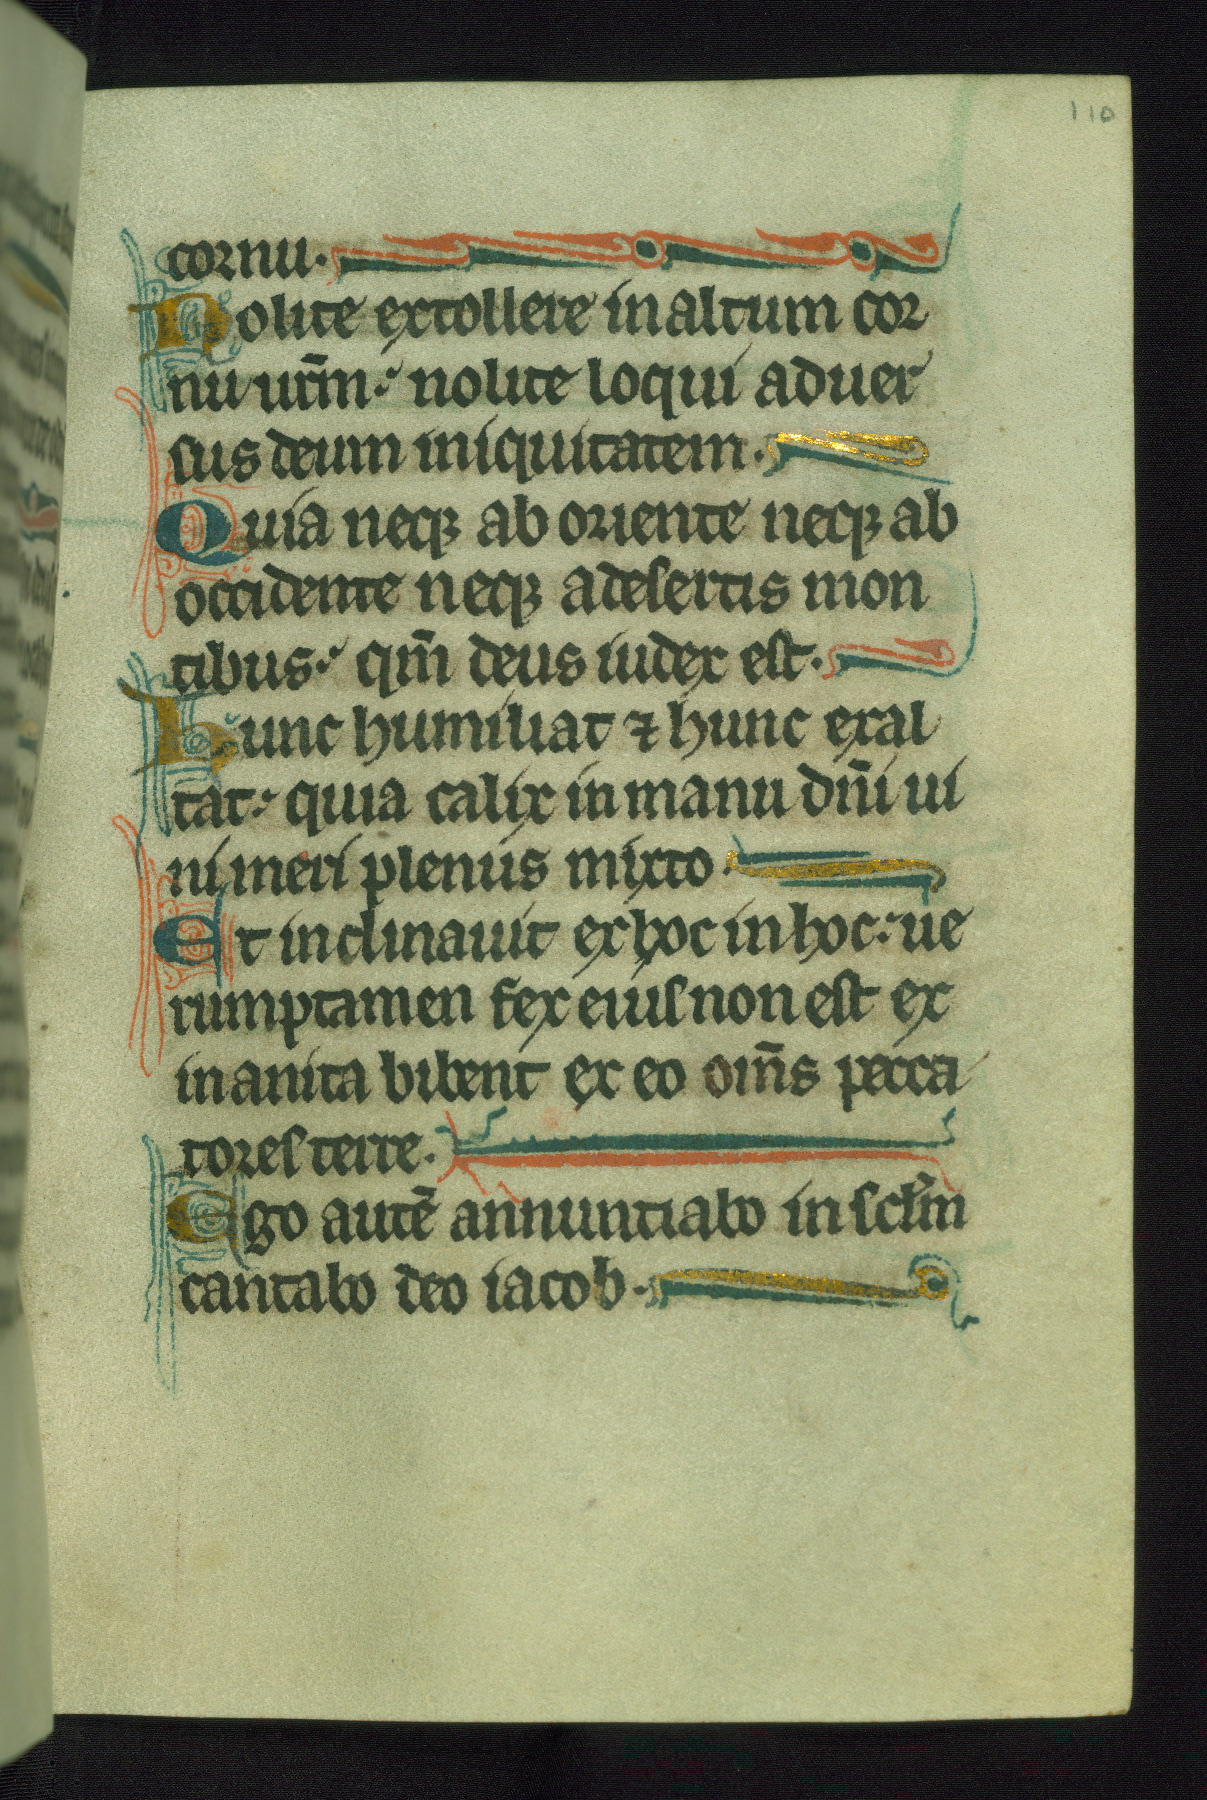 110
cornu.
Nolite extollere in altum cor
nu ur̄m. nolite loqui aduer
sus deum iniquitatem.
Quia neqꝫ ab oriente neqꝫ ab
occidente neqꝫ adesertis mon
tibus. qm̄ deus iudex est.
Hunc humiliat ⁊ hunc exal
tat. quia calix in manu dn̄i ui
ni meri plenus mixto.
Et inclinauit ex hoc in hoc. ue
rumptamen fex eius non est ex
inanita bibent ex eo om̄s pecca
tores terre.
Ego autē annuntiabo in sclm̄
cantabo deo iacob.